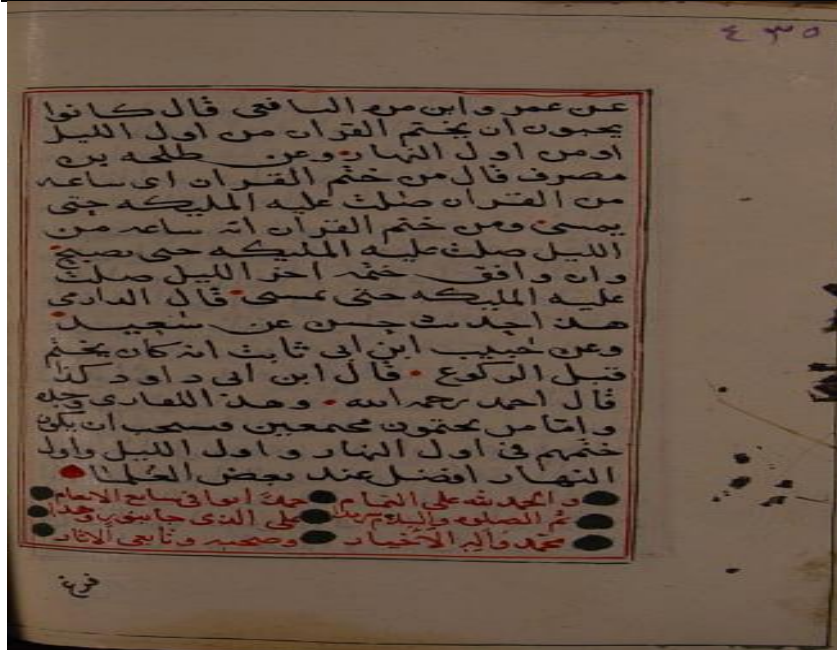 ٤٣٥
عن عمر وابن مره التابعي قال كانوا
يحبون ان يختم القران من اول الليل
او من اول النهار وعن طلحه بن
مصرف قال من ختم القران اى ساعه
من القران صلت عليه المليكه حتى
يمسى ومن ختم القران اته ساعه من
الليل صلت عليه المليكه حتى يصبح
وان وافق ختمه اخر الليل صلت
عليه المليكه حتى يمسى قال الدارمى
هذا حديث حسن عن سعيد
وعن حبيب ابن ابى ثابت انه كان يختم
قبل الركوع قال ابن ابى داود كذا
قال احمد رحمه الله وهذا للقارى وحده
واما من يختمون مجتمعين فيستحب ان يكون
ختمهم فى اول النهار و اول الليل واول
النهار افضل عند بعض العلما
والحمد لله على التمام حمدا
ثم الصلوه والسلام على الذى وهدا
محمد واله الاخيار وصحبه وتابعى الاثار